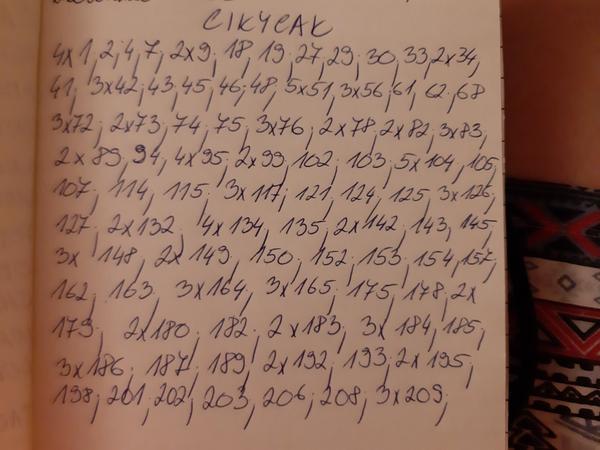 СІКЧСАК
4x1; 2; 4; 7; 2x9; 18; 19; 27; 29; 30; 33; 2x34;
41; 3x42; 43; 45; 46; 48; 5x51; 3x56; 61; 62; 68
3x72; 2x73; 74; 75; 3x76; 2x78; 2x82; 3x83;
2x89; 94; 4x95; 2x99; 102; 103; 5x104; 105;
107; 114; 115; 3x117; 121; 124; 125; 3x126;
127; 2x132; 4x134; 135; 2x142; 143; 145;
3x 148; 2x 149; 150; 152; 153; 154; 157;
162; 163; 3x164; 3x165; 175; 178; 2x
179; 2x180; 182; 2x183; 3x184; 185;
3x186; 187; 189; 2x192; 193; 2x195;
198; 201; 202; 203; 206; 208; 3x209;